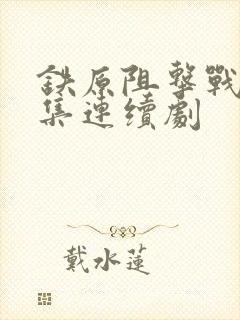 鉄原阻擊戰
集連續劇
戴水蓮